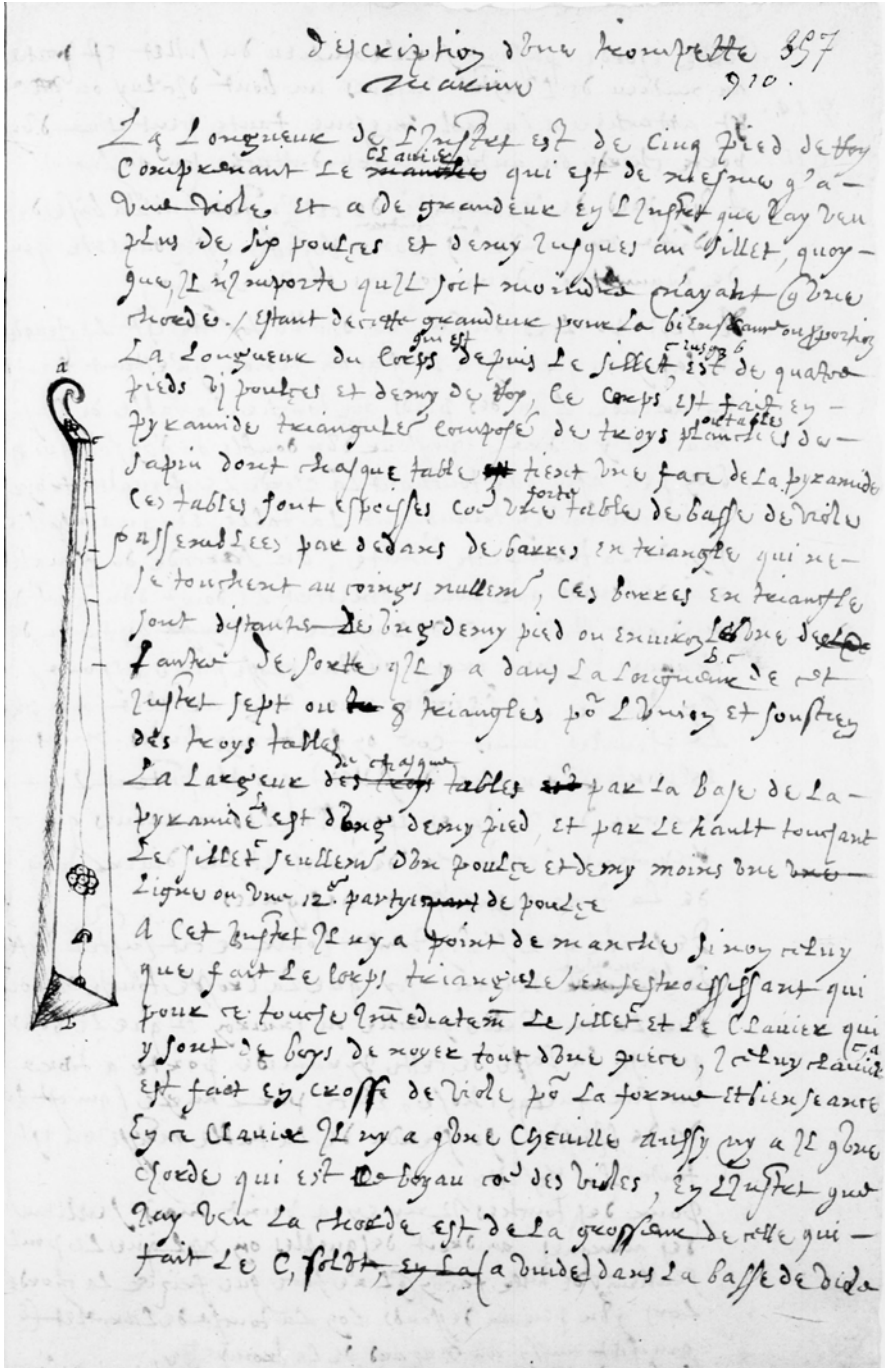 Description d'une trompette 357
Marine 910.
La Longueur de L'Instrt est de cinq pied de Roy
Comprenant Le manche clavier qui est de mesme q'a
Une viole, et a de grandeur en L'Instrt que J'ay veu
plus de six poulces et demy Jusques au sillet, quoy
que, Il n'Importe qu'Il soit moindre n'ayant q'une
chorde. / Estant de cette grandeur pour La bienseance ou proportion
La Longueur du Corps qui est depuis Le sillet c jusq b, est de quatre
pieds vj poulces et demy de Roy, Ce Corps est fait en
pyramide triangulere composé de troys planches ou table de
sapin dont chasque table est tient une face de La pyramide
Ces tables sont espoisses coe une forte table de basse de viole
assemblees par dedans de barres en triangle qui ne
se touchent au coings nullemt, Ces barres en triangle
sont distante de ung demy pied ou environ L'une de
L'autre De sorte q'Il y a dans La Longueur b c de cet
Instrt sept ou 8 triangles po L'union et soustien
des troys tables
La Largeur des troys de chasque tables est par La base de La
pyramide b est d'ung demy pied, et par Le hault touchant
Le sillet c seullemt d'un poulce et demy moins une une
Ligne ou une 12e partye de poulce
A Cet Instrt Il n'y a point de manche sinon celuy
que fait Le Corps triangulere en s'estroississant qui
pour ce touche Immediatemt Le sillet c et Le Clavier qui
y sont de boys de noyer tout d'une piece, Iceluy clavier c a
est fact en crosse de viole po La forme et bienseance
En ce Clavier Il n'y a q'une Cheville Aussy n'y a Il q'une
Chorde qui est De boyau coe des violes, En L'Instrt que
J'ay veu La chorde est de La grosseur de celle qui
fait Le C, sol ut, en La (a vuide) dans La basse de viole
a
c
b